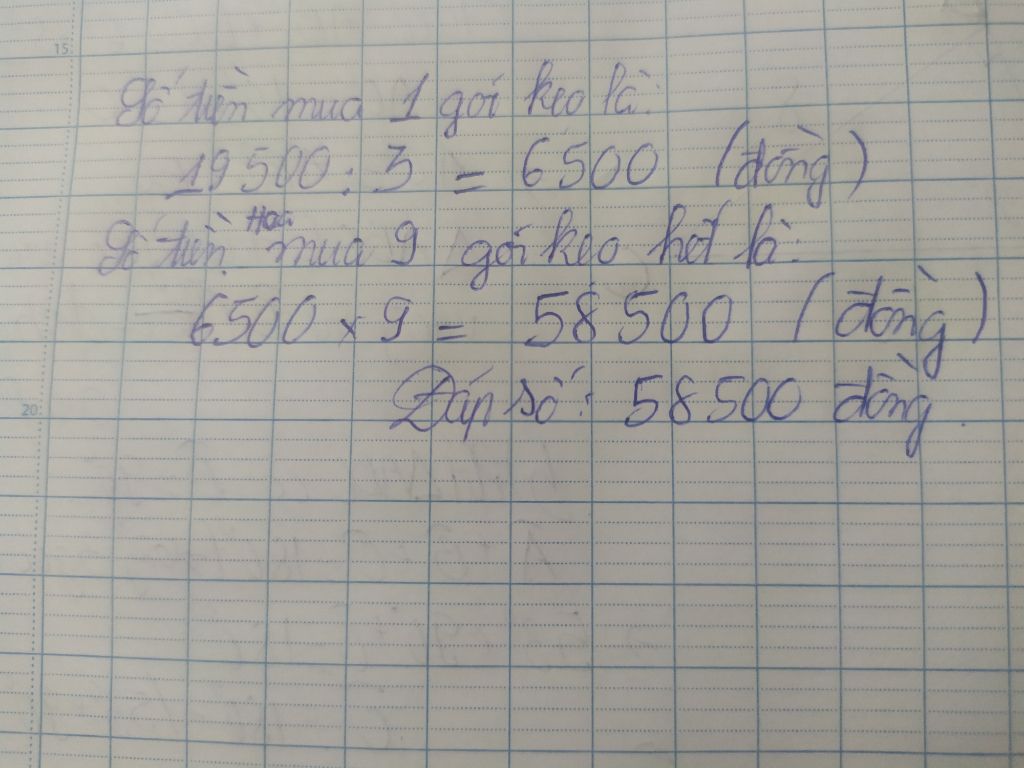 15
Số tiền mua 1 gói kẹo là:
19 500 : 3 = 6500 (đồng)
Số tiền Hoa mua 9 gói kẹo hết là:
6500 × 9 = 58 500 (đồng)
20
Đáp số: 58 500 đồng.